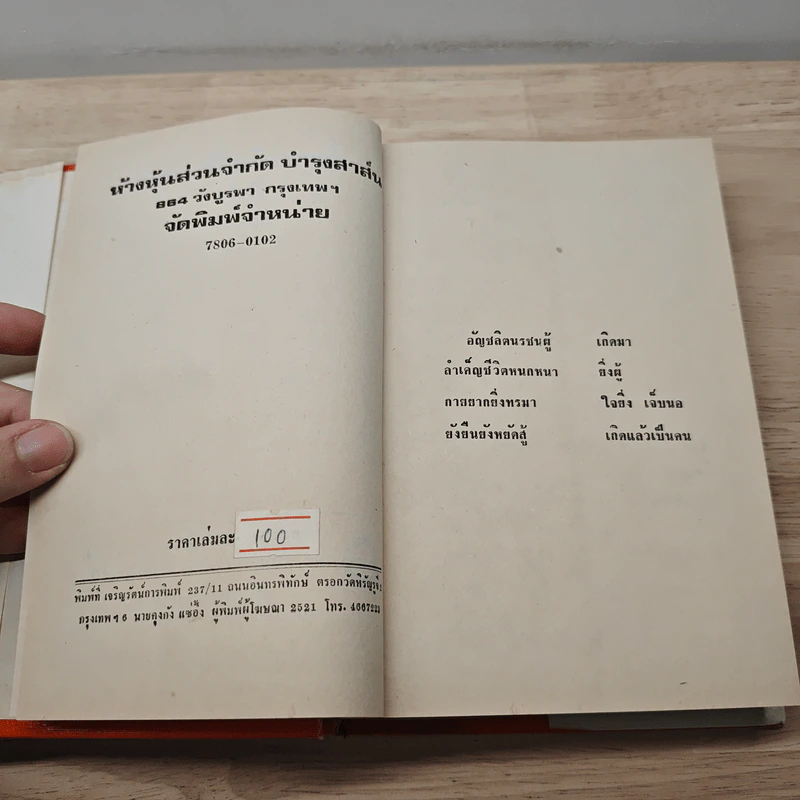 ห้างหุ้นส่วนจำกัด บำรุงสาส์น
864 วังบูรพา กรุงเทพฯ
จัดพิมพ์จำหน่าย
7806-0102
ราคาเล่มละ 100
พิมพ์ที่ เจริญรัตน์การพิมพ์ 237/11 ถนนอินทรพิทักษ์ ตรอกวัดหิรัญรูจี
กรุงเทพฯ 6 นายคุงกัง แซ่อึ้ง ผู้พิมพ์ผู้โฆษณา 2521 โทร.
อัญชลิตนรชนผู้ เกิดมา
ลำเค็ญชีวิตหนกหนา ยิ่งผู้
กายยากยิ่งทรมา ใจยิ่ง เจ็บนอ
ยังยืนยังหยัดสู้ เกิดแล้วเป็นคน